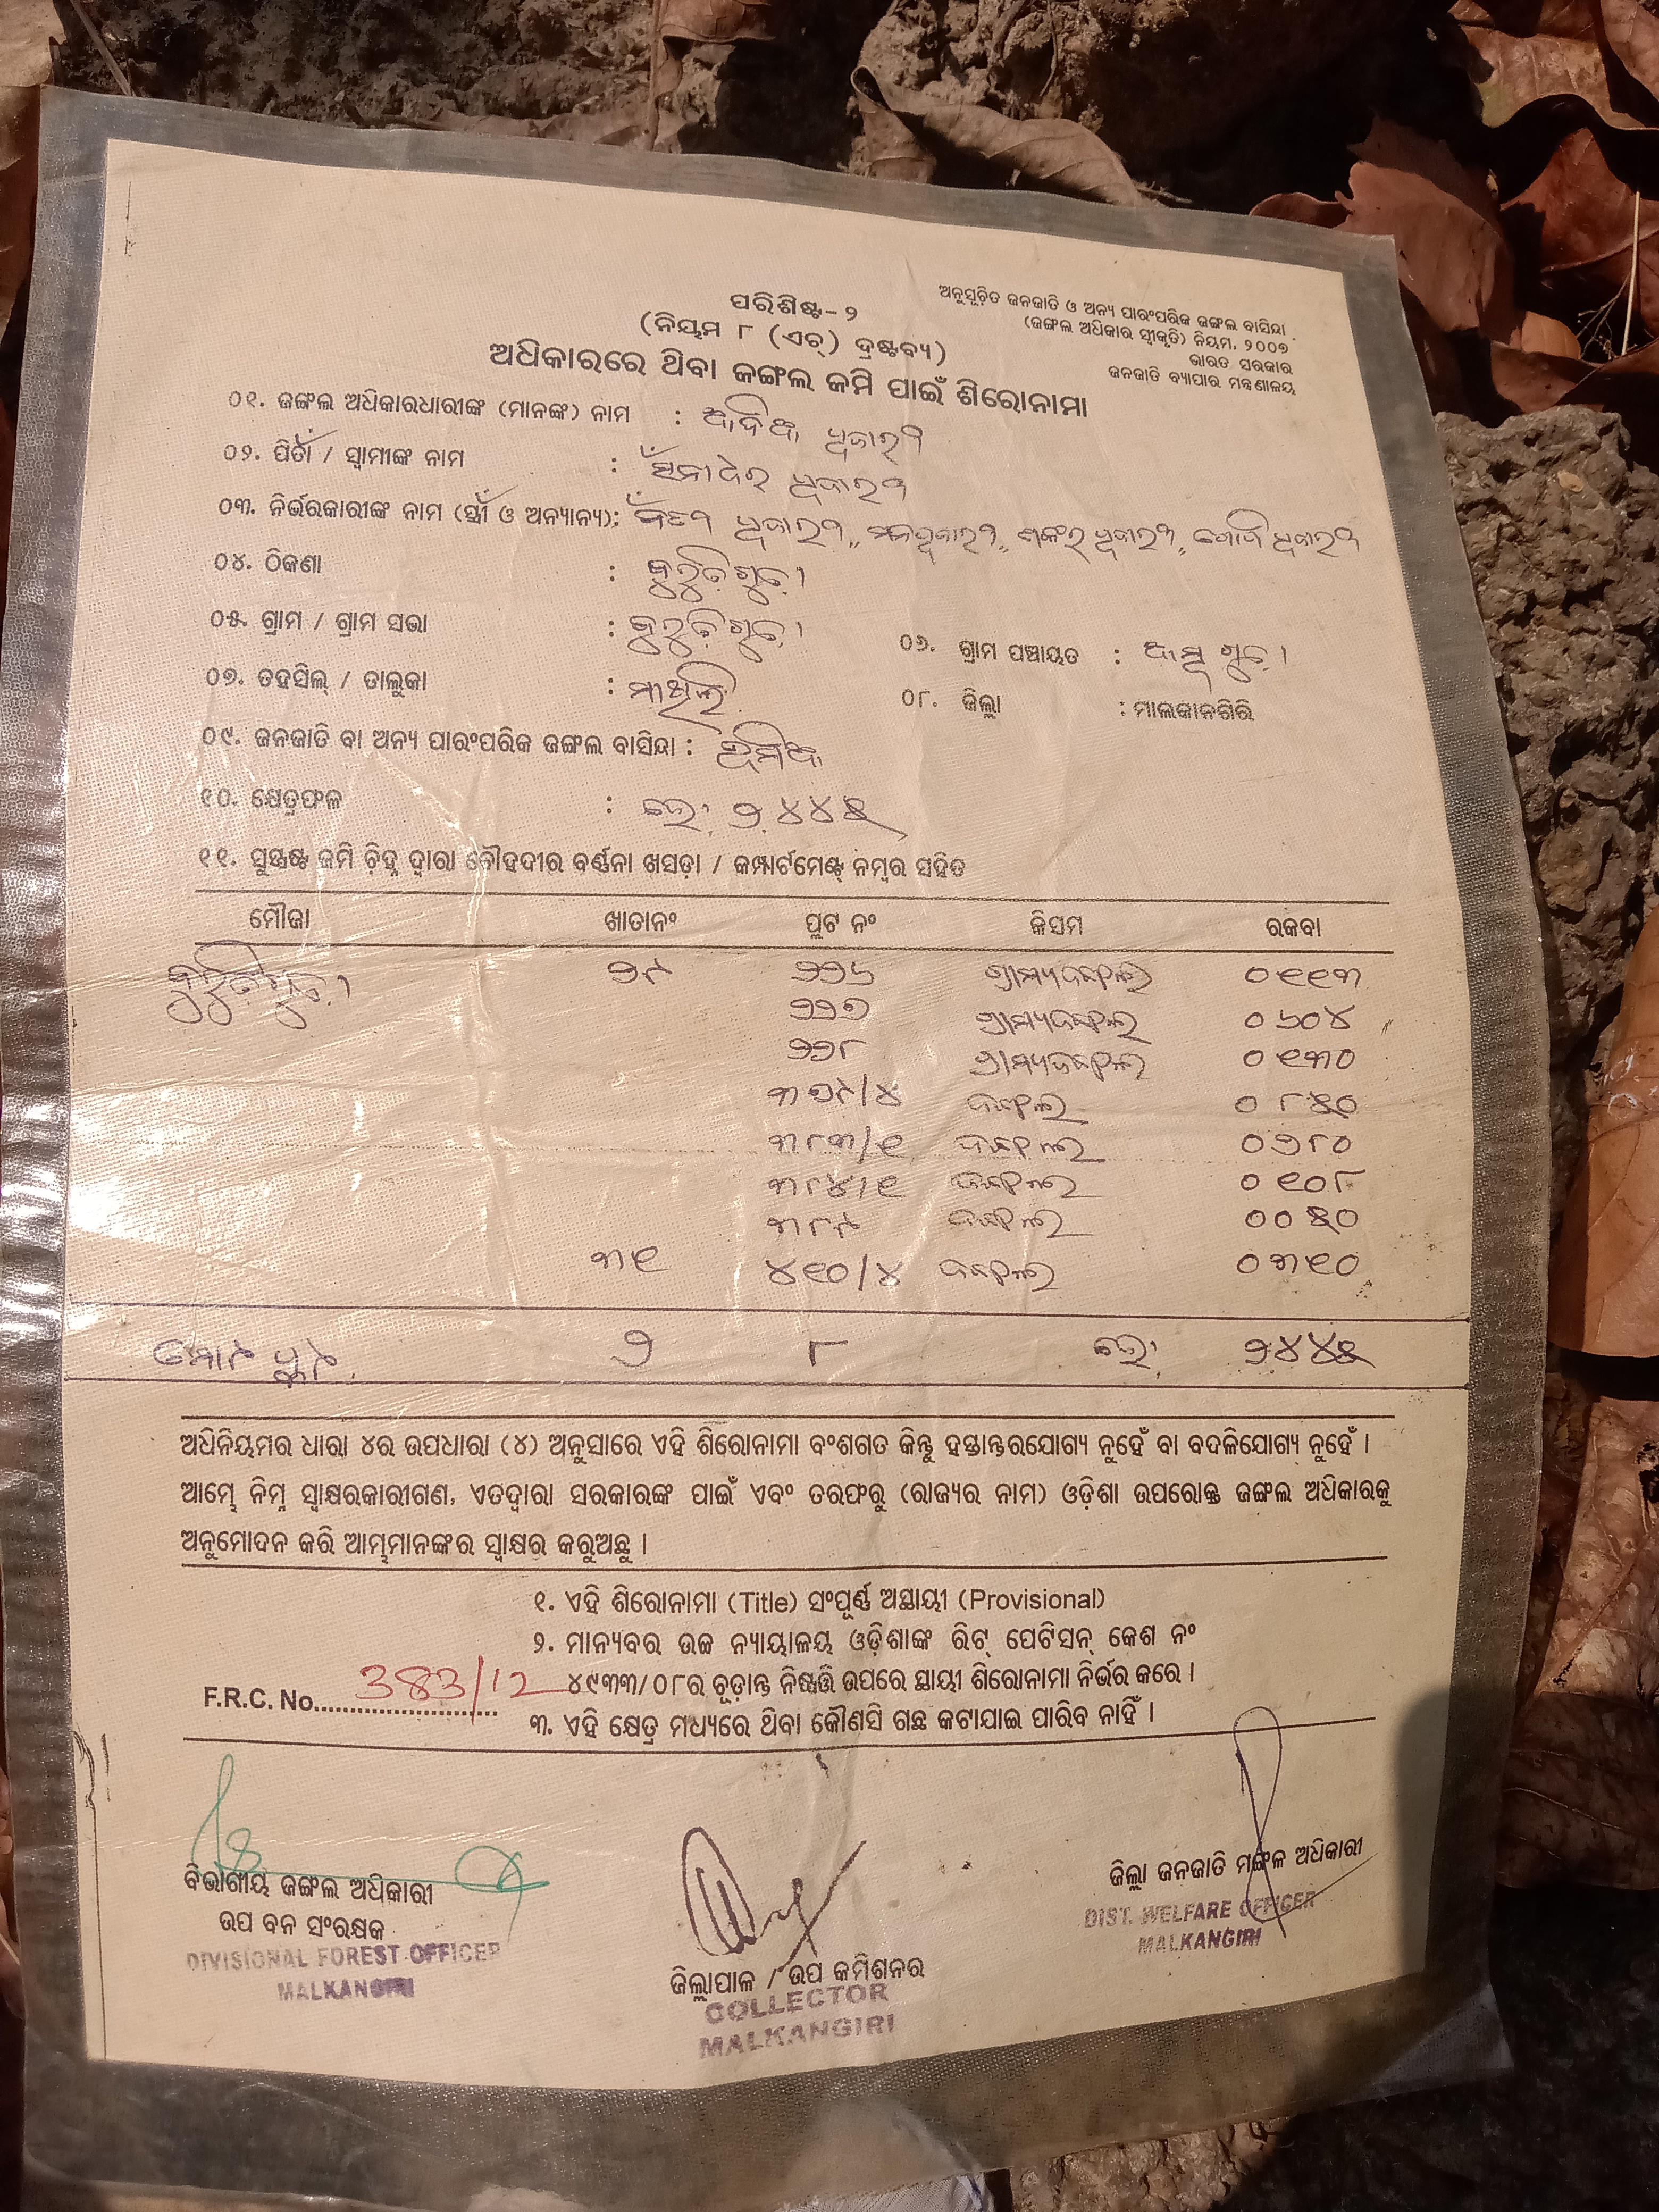 ଅନୁସୂଚିତ ଜନଜାତି ଓ ଅନ୍ୟ ପାରଂପରିକ ଜଙ୍ଗଲ ବାସିନ୍ଦା
(ଜଙ୍ଗଲ ଅଧିକାର ସ୍ୱୀକୃତି) ନିୟମ, ୨୦୦୭
ଭାରତ ସରକାର
ଜନଜାତି ବ୍ୟାପାର ମନ୍ତ୍ରଣାଳୟ
ପରିଶିଷ୍ଟ-୨
(ନିୟମ ୮ (ଏଚ୍) ଦ୍ରଷ୍ଟବ୍ୟ)
ଅଧିକାରରେ ଥିବା ଜଙ୍ଗଲ ଜମି ପାଇଁ ଶିରୋନାମା
୦୧. ଜଙ୍ଗଲ ଅଧିକାରଧାରୀଙ୍କ (ମାନଙ୍କ) ନାମ :
୦୨. ପିତା / ସ୍ୱାମୀଙ୍କ ନାମ :
୦୩. ନିର୍ଭରକାରୀଙ୍କ ନାମ (ସ୍ତ୍ରୀ ଓ ଅନ୍ୟାନ୍ୟ):
୦୪. ଠିକଣା :
୦୫. ଗ୍ରାମ / ଗ୍ରାମ ସଭା :
୦୬. ଗ୍ରାମ ପଞ୍ଚାୟତ :
୦୭. ତହସିଲ୍ / ତାଲୁକା : ମାଥିଲି
୦୮. ଜିଲ୍ଲା : ମାଲକାନଗିରି
୦୯. ଜନଜାତି ବା ଅନ୍ୟ ପାରଂପରିକ ଜଙ୍ଗଲ ବାସିନ୍ଦା :
୧୦. କ୍ଷେତ୍ରଫଳ : ହେ: ୨.୪୪୫
୧୧. ସୁସ୍ପଷ୍ଟ ଜମି ଚିହ୍ନ ଦ୍ୱାରା ଚୌହଦୀର ବର୍ଣ୍ଣନା ଖସଡ଼ା / କମ୍ପାର୍ଟମେଣ୍ଟ୍ ନମ୍ବର ସହିତ
ମୌଜା ଖାତାନଂ ପ୍ଲଟ ନଂ କିସମ ରକବା
୨୯ ୨୨୬ ଗ୍ରାମ୍ୟଜଙ୍ଗଲ ୦୧୧୩
୨୨୭ ଗ୍ରାମ୍ୟଜଙ୍ଗଲ ୦୬୦୪
୨୨୮ ଗ୍ରାମ୍ୟଜଙ୍ଗଲ ୦୧୩୦
୩୭୯/୪ ଜଙ୍ଗଲ ୦୮୫୦
୩୮୩/୧ ଜଙ୍ଗଲ ୦୨୮୦
୩୮୪/୧ ଜଙ୍ଗଲ ୦୧୦୮
୩୮୯ ଜଙ୍ଗଲ ୦୦୫୦
୩୧ ୪୧୦/୪ ଜଙ୍ଗଲ ୦୩୧୦
୨ ୮ ହେ: ୨୪୪୫
ଅଧିନିୟମର ଧାରା ୪ର ଉପଧାରା (୪) ଅନୁସାରେ ଏହି ଶିରୋନାମା ବଂଶଗତ କିନ୍ତୁ ହସ୍ତାନ୍ତରଯୋଗ୍ୟ ନୁହେଁ ବା ବଦଳିଯୋଗ୍ୟ ନୁହେଁ ।
ଆମ୍ଭେ ନିମ୍ନ ସ୍ୱାକ୍ଷରକାରୀଗଣ, ଏତଦ୍ୱାରା ସରକାରଙ୍କ ପାଇଁ ଏବଂ ତରଫରୁ (ରାଜ୍ୟର ନାମ) ଓଡ଼ିଶା ଉପରୋକ୍ତ ଜଙ୍ଗଲ ଅଧିକାରକୁ
ଅନୁମୋଦନ କରି ଆମ୍ଭମାନଙ୍କର ସ୍ୱାକ୍ଷର କରୁଅଛୁ ।
୧. ଏହି ଶିରୋନାମା (Title) ସଂପୂର୍ଣ୍ଣ ଅସ୍ଥାୟୀ (Provisional)
୨. ମାନ୍ୟବର ଉଚ୍ଚ ନ୍ୟାୟାଳୟ ଓଡ଼ିଶାଙ୍କ ରିଟ୍ ପେଟିସନ୍ କେଶ ନଂ
୪୯୩୩/୦୮ର ଚୂଡ଼ାନ୍ତ ନିଷ୍ପତ୍ତି ଉପରେ ସ୍ଥାୟୀ ଶିରୋନାମା ନିର୍ଭର କରେ ।
F.R.C. No. 383/12
୩. ଏହି କ୍ଷେତ୍ର ମଧ୍ୟରେ ଥିବା କୌଣସି ଗଛ କଟାଯାଇ ପାରିବ ନାହିଁ ।
ବିଭାଗୀୟ ଜଙ୍ଗଲ ଅଧିକାରୀ
ଉପ ବନ ସଂରକ୍ଷକ
DIVISIONAL FOREST OFFICER
MALKANGIRI
ଜିଲ୍ଲାପାଳ / ଉପ କମିଶନର
COLLECTOR
MALKANGIRI
ଜିଲ୍ଲା ଜନଜାତି ମଙ୍ଗଳ ଅଧିକାରୀ
DIST. WELFARE OFFICER
MALKANGIRI